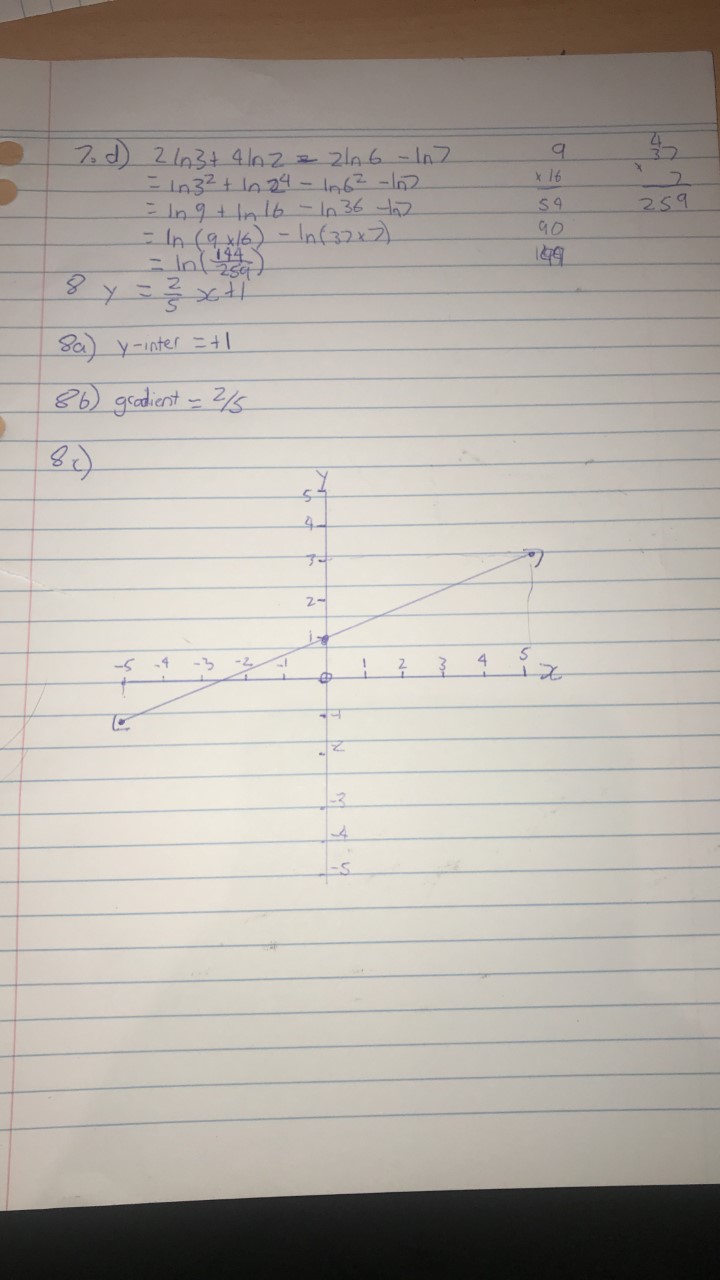 7. d) 2ln3 + 4ln2 - 2ln6 - ln7
= ln3² + ln2⁴ - ln6² - ln7
= ln9 + ln16 - ln36 - ln7
= ln(9×16) - ln(37×7)
= ln(144/259)
9
×16
54
90
4
37
× 7
259
8 y = 2/5 x+1
8a) y-inter = +1
8b) gradient = 2/5
8c)
y
5
4
3
2
1
-5 -4 -3 -2 -1 1 2 3 4 5 x
0
-1
-2
-3
-4
-5